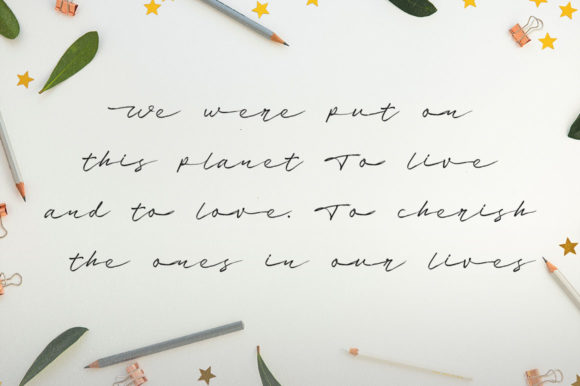 We were put on
this planet To live
and to love. To cherish
the ones in our lives